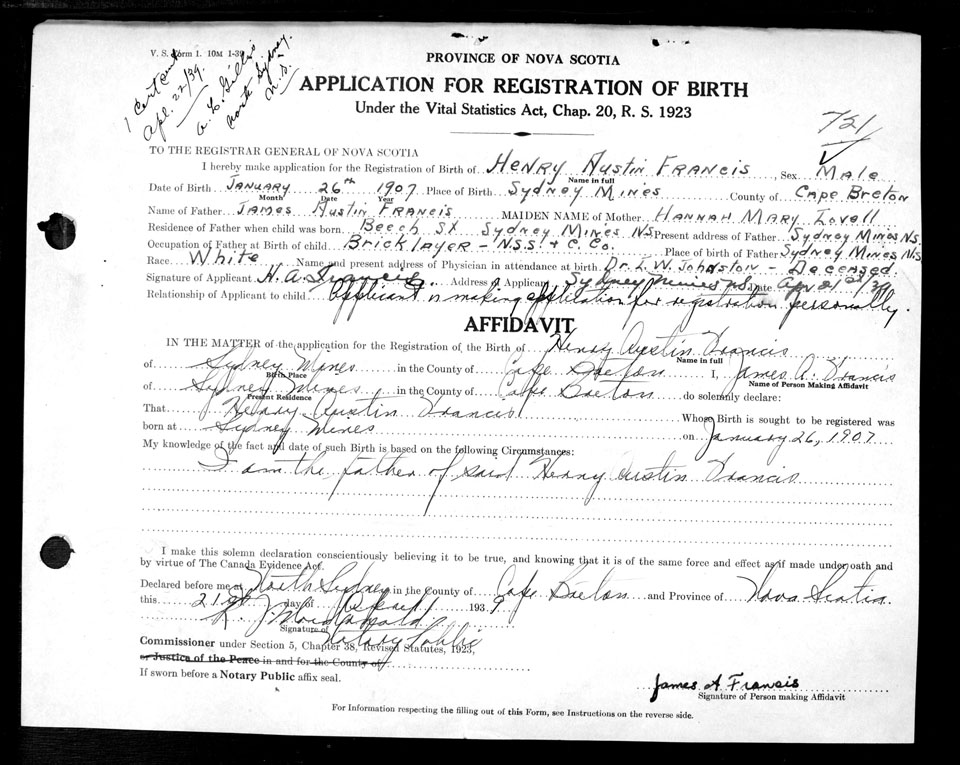 V. S. Form 1. 10M 1-39
1 Cert sent
Apl. 22/39.
North Sydney.
N.S.
PROVINCE OF NOVA SCOTIA
APPLICATION FOR REGISTRATION OF BIRTH
Under the Vital Statistics Act, Chap. 20, R. S. 1923
721
TO THE REGISTRAR GENERAL OF NOVA SCOTIA
I hereby make application for the Registration of Birth of Henry Austin Francis Sex Male
Name in full
Date of Birth January 26th 1907 Place of Birth Sydney Mines County of Cape Breton
Month Date Year
Name of Father James Austin Francis MAIDEN NAME of Mother Hannah Mary Lovell
Residence of Father when child was born: Beech St Sydney Mines N.S. Present address of Father Sydney Mines N.S.
Occupation of Father at Birth of child Bricklayer - N.S.S. & C. Co. Place of birth of Father Sydney Mines N.S.
Race White Name and present address of Physician in attendance at birth Dr. L. W. Johnston - Deceased.
Signature of Applicant H. A. Francis Address of Applicant Sydney Mines N.S. Date Apr 21st/39
Relationship of Applicant to child Applicant is making application for registration personally.
AFFIDAVIT
IN THE MATTER of the application for the Registration of the Birth of Henry Austin Francis
Name in full
of Sydney Mines in the County of Cape Breton I, James A. Francis
Birth Place Name of Person Making Affidavit
of Sydney Mines, in the County of Cape Breton do solemnly declare:
Present Residence
That Henry Austin Francis Whose Birth is sought to be registered was
born at Sydney Mines on January 26, 1907
My knowledge of the fact and date of such Birth is based on the following Circumstances:
I am the father of said Henry Austin Francis
I make this solemn declaration conscientiously believing it to be true, and knowing that it is of the same force and effect as if made under oath and
by virtue of The Canada Evidence Act.
Declared before me at North Sydney in the County of Cape Breton and Province of Nova Scotia
this 21st day of April 1939
Signature of Notary Public
Commissioner under Section 5, Chapter 38, Revised Statutes, 1923,
or Justice of the Peace in and for the County of
If sworn before a Notary Public affix seal.
James A Francis
Signature of Person making Affidavit
For Information respecting the filling out of this Form, see Instructions on the reverse side.